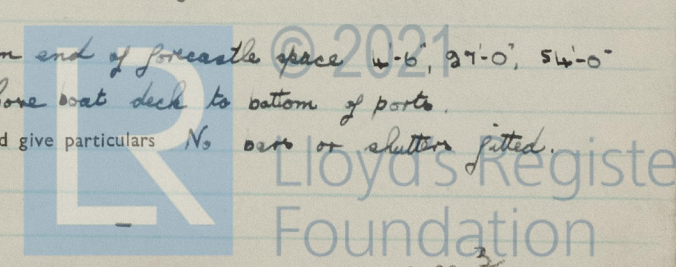 n end of forecastle space 4'-6", 27'-0", 54'-0"
bove boat deck to bottom of ports.
d give particulars No bars or shutters fitted.
LR
© 2021
Lloyd's Registe
Foundation